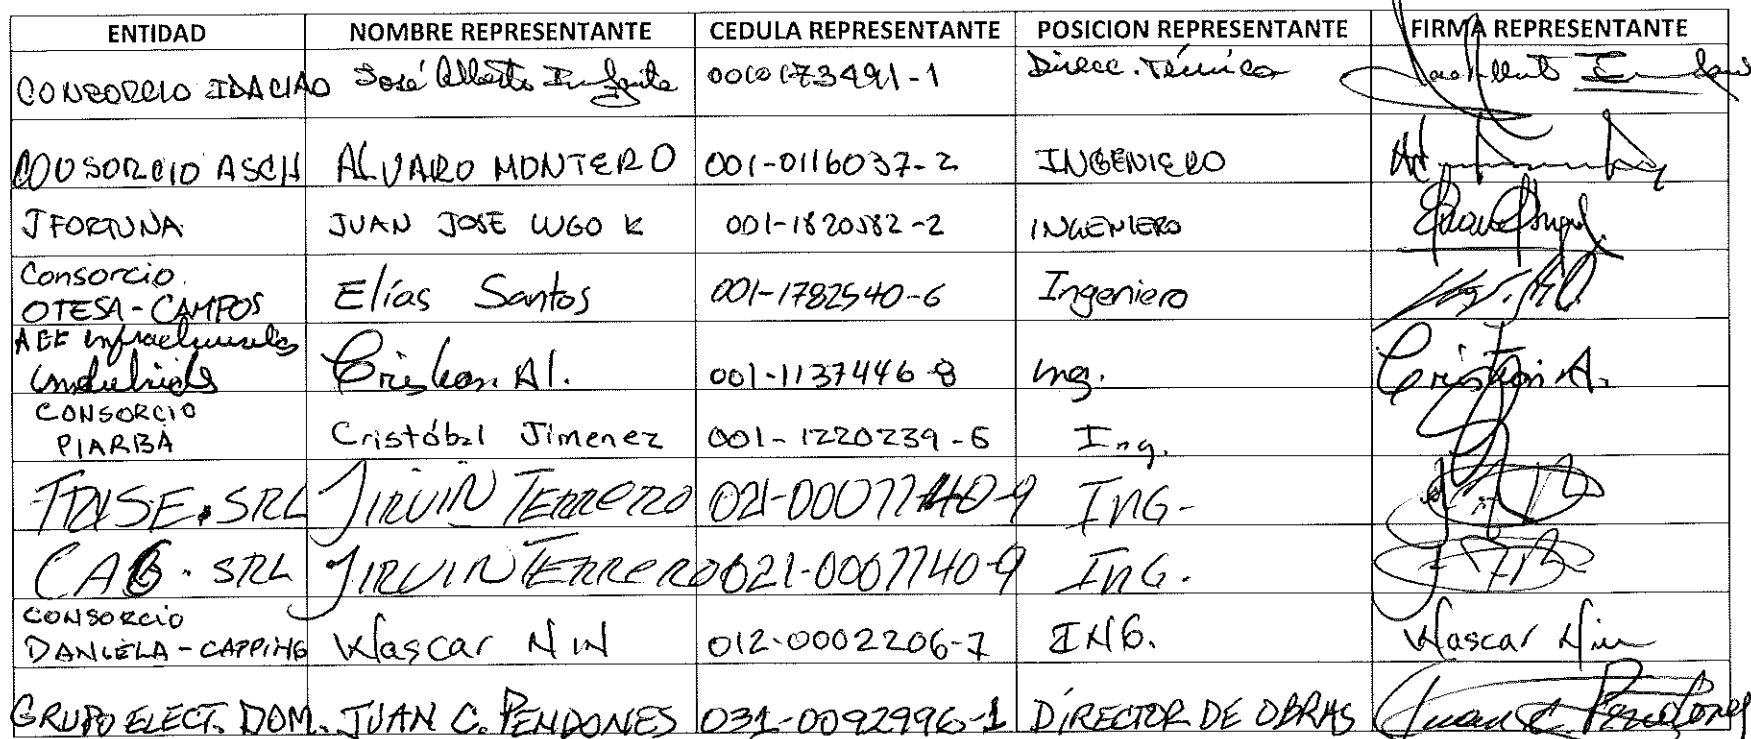 ENTIDAD NOMBRE REPRESENTANTE CEDULA REPRESENTANTE POSICION REPRESENTANTE FIRMA REPRESENTANTE
CONSORCIO IDACIAO José Alberto 0010173491-1 Direcc. Técnica
CONSORCIO ASCH ALVARO MONTERO 001-0116037-2 INGENIERO
JFORTUNA JUAN JOSE LUGO K 001-1820582-2 INGENIERO
Consorcio
OTESA-CAMPOS Elías Santos 001-1782540-6 Ingeniero
AEF
Cristian Al. 001-1137446-8 Ing. Cristian A.
CONSORCIO
PIARBA Cristóbal Jimenez 001-1220239-6 Ing.
SRL JIRVIN TERRERO 021-0007740-9 ING-
SRL JIRVIN TERRERO 021-0007740-9 ING.
CONSORCIO
DANIELA-CAPPING Wascar Nin 012-0002206-7 ING. Wascar Nin
GRUPO ELECT. DOM. JUAN C. PENDONES 031-0092996-1 DIRECTOR DE OBRAS Juan C. Pendones